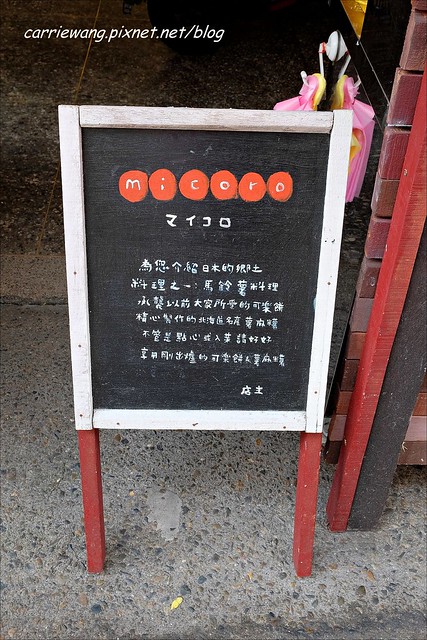 carriewang.pixnet.net/blog
micoro
マイコロ
為您介紹日本的鄉土
料理之一：馬鈴薯料理
承襲以前大家所愛的可樂餅
精心製作的北海道名產薯麻糬
不管是點心或入菜請好好
享用剛出爐的可樂餅&薯麻糬
店主